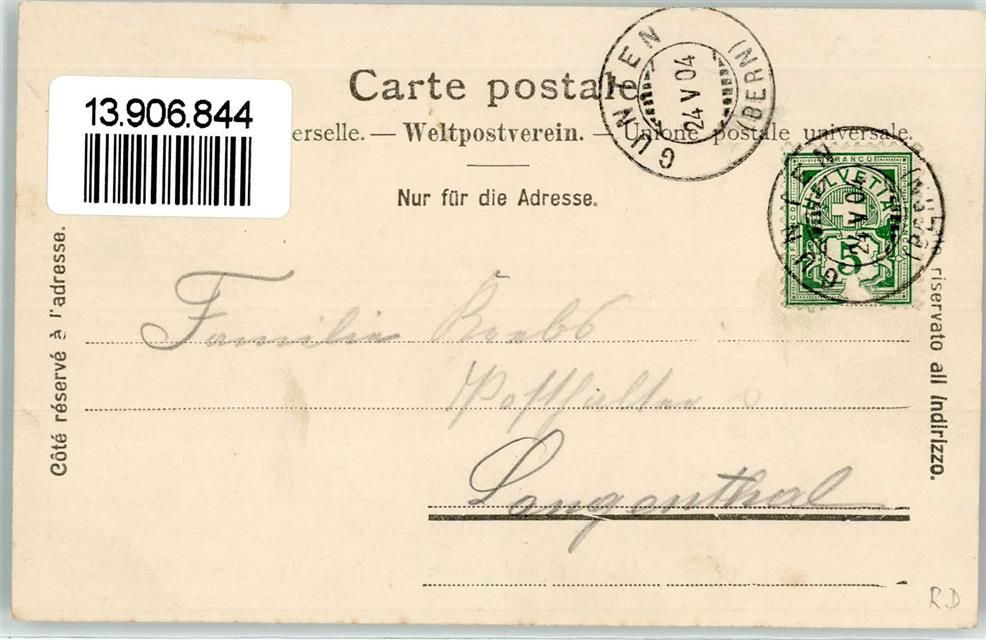 13.906.844
Carte postale
erselle. — Weltpostverein. — Unione postale universale.
Nur für die Adresse.
GUNTEN (BERN)
24 V 04
FRANCO
HELVETIA
5
GUNTEN (BERN)
24 V 0
Côté réservé à l'adresse.
riservato all Indirizzo.
Familie Krebs
Posthalter
Langenthal
RD